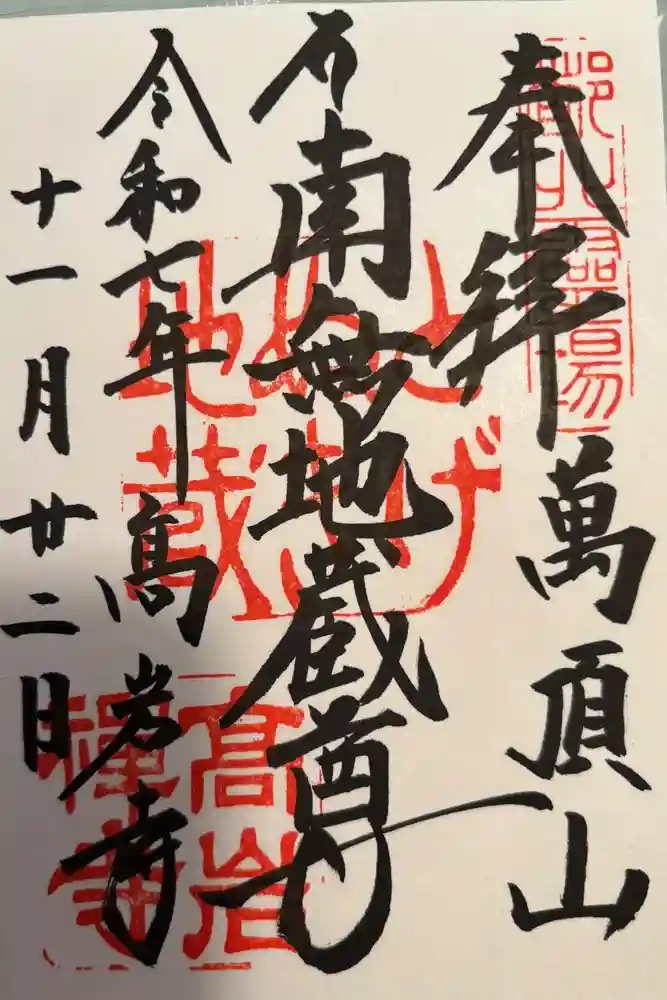 奉拝 萬頂山
南無地蔵尊
令和七年 高岩寺
十一月廿二日
とげぬき
地蔵
高岩
禅寺